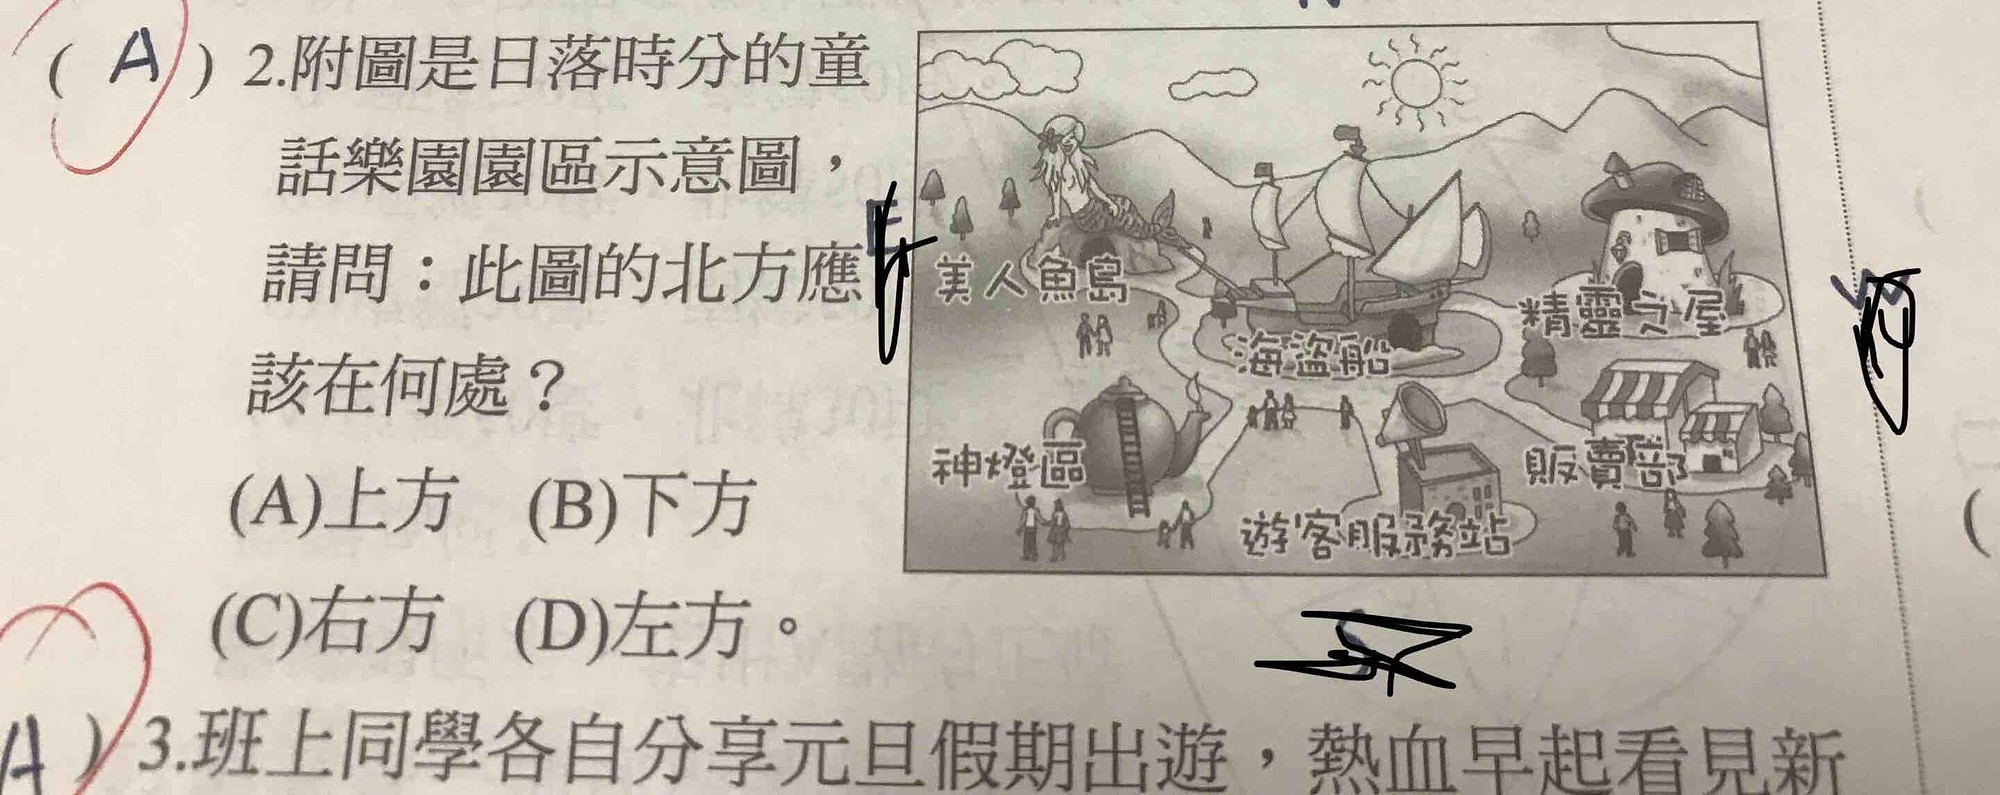 ( A ) 2.附圖是日落時分的童
話樂園園區示意圖，
請問：此圖的北方應
該在何處？
(A)上方 (B)下方
(C)右方 (D)左方。
美人魚島
海盜船
精靈之屋
神燈區
遊客服務站
販賣部
A ) 3.班上同學各自分享元旦假期出遊，熱血早起看見新
(